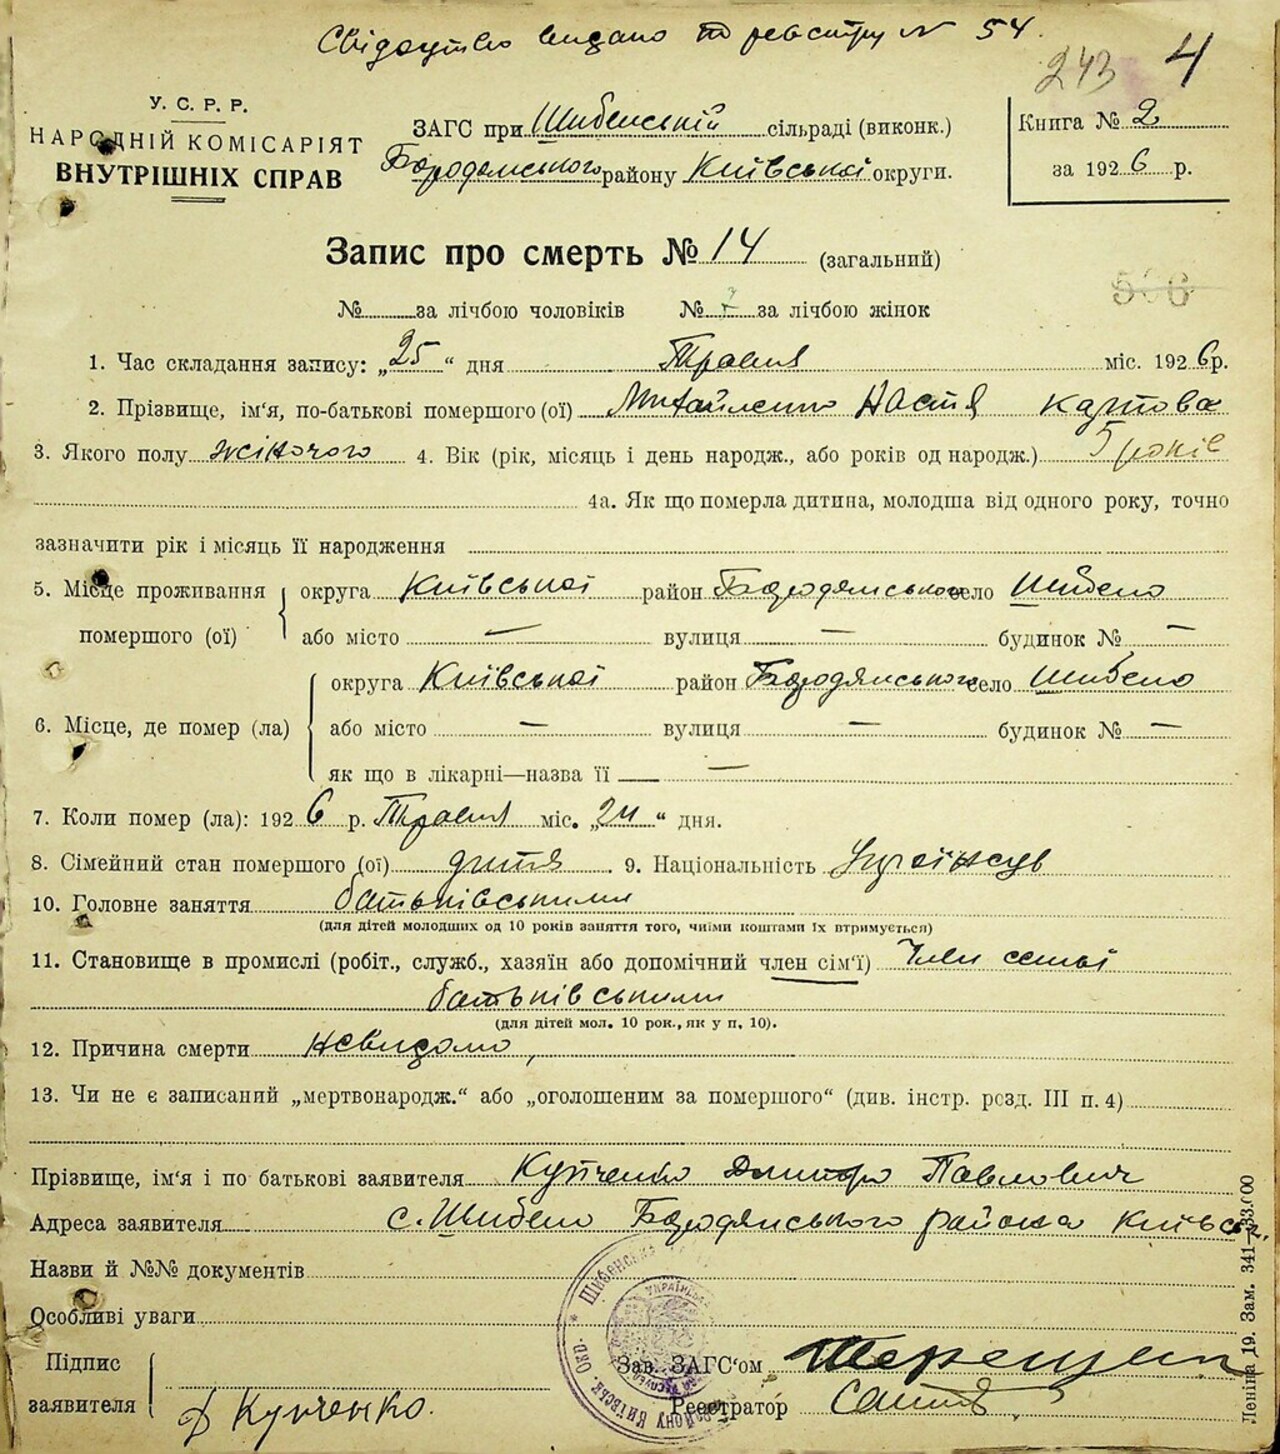 Свідоцтво видано по реєстру № 54.
243 4
У. С. Р. Р.
НАРОДНІЙ КОМІСАРІЯТ
ВНУТРІШНІХ СПРАВ
ЗАГС при Шибенській сільраді (виконк.)
Бородянського району Київської округи.
Книга № 2
за 1926 р.
Запис про смерть № 14 (загальний)
№ за лічбою чоловіків № 7 за лічбою жінок
1. Час складання запису: „25“ дня Травня міс. 1926 р.
2. Прізвище, ім‘я, по-батькові помершого (ої) Михайленко Настя
3. Якого полу жіночого 4. Вік (рік, місяць і день народж., або років од народж.) 5 років
4а. Як що померла дитина, молодша від одного року, точно
зазначити рік і місяць її народження
5. Місце проживання помершого (ої) округа Київської район Бородянського село Шибено
або місто — вулиця — будинок № —
6. Місце, де помер (ла) округа Київської район Бородянського село Шибено
або місто — вулиця — будинок № —
як що в лікарні—назва її —
7. Коли помер (ла): 1926 р. Травня міс. „24“ дня.
8. Сімейний стан помершого (ої) дитя 9. Національність
10. Головне заняття батьківськими
(для дітей молодших од 10 років заняття того, чиїми коштами їх втримується)
11. Становище в промислі (робіт., служб., хазяїн або допомічний член сім‘ї) Член семьї
батьківськими
(для дітей мол. 10 рок., як у п. 10).
12. Причина смерти невидомо,
13. Чи не є записаний „мертвонародж.“ або „оголошеним за помершого“ (див. інстр. розд. III п. 4)
Прізвище, ім‘я і по батькові заявителя Купченко Дмитро Павлович
Адреса заявителя с. Шибено Бородянського района Київськ.
Назви й №№ документів
Особливі уваги
Підпис заявителя Д Купченко.
Зав. ЗАГС‘ом
Реєстратор
Леніна 19. Зам. 341—33.000